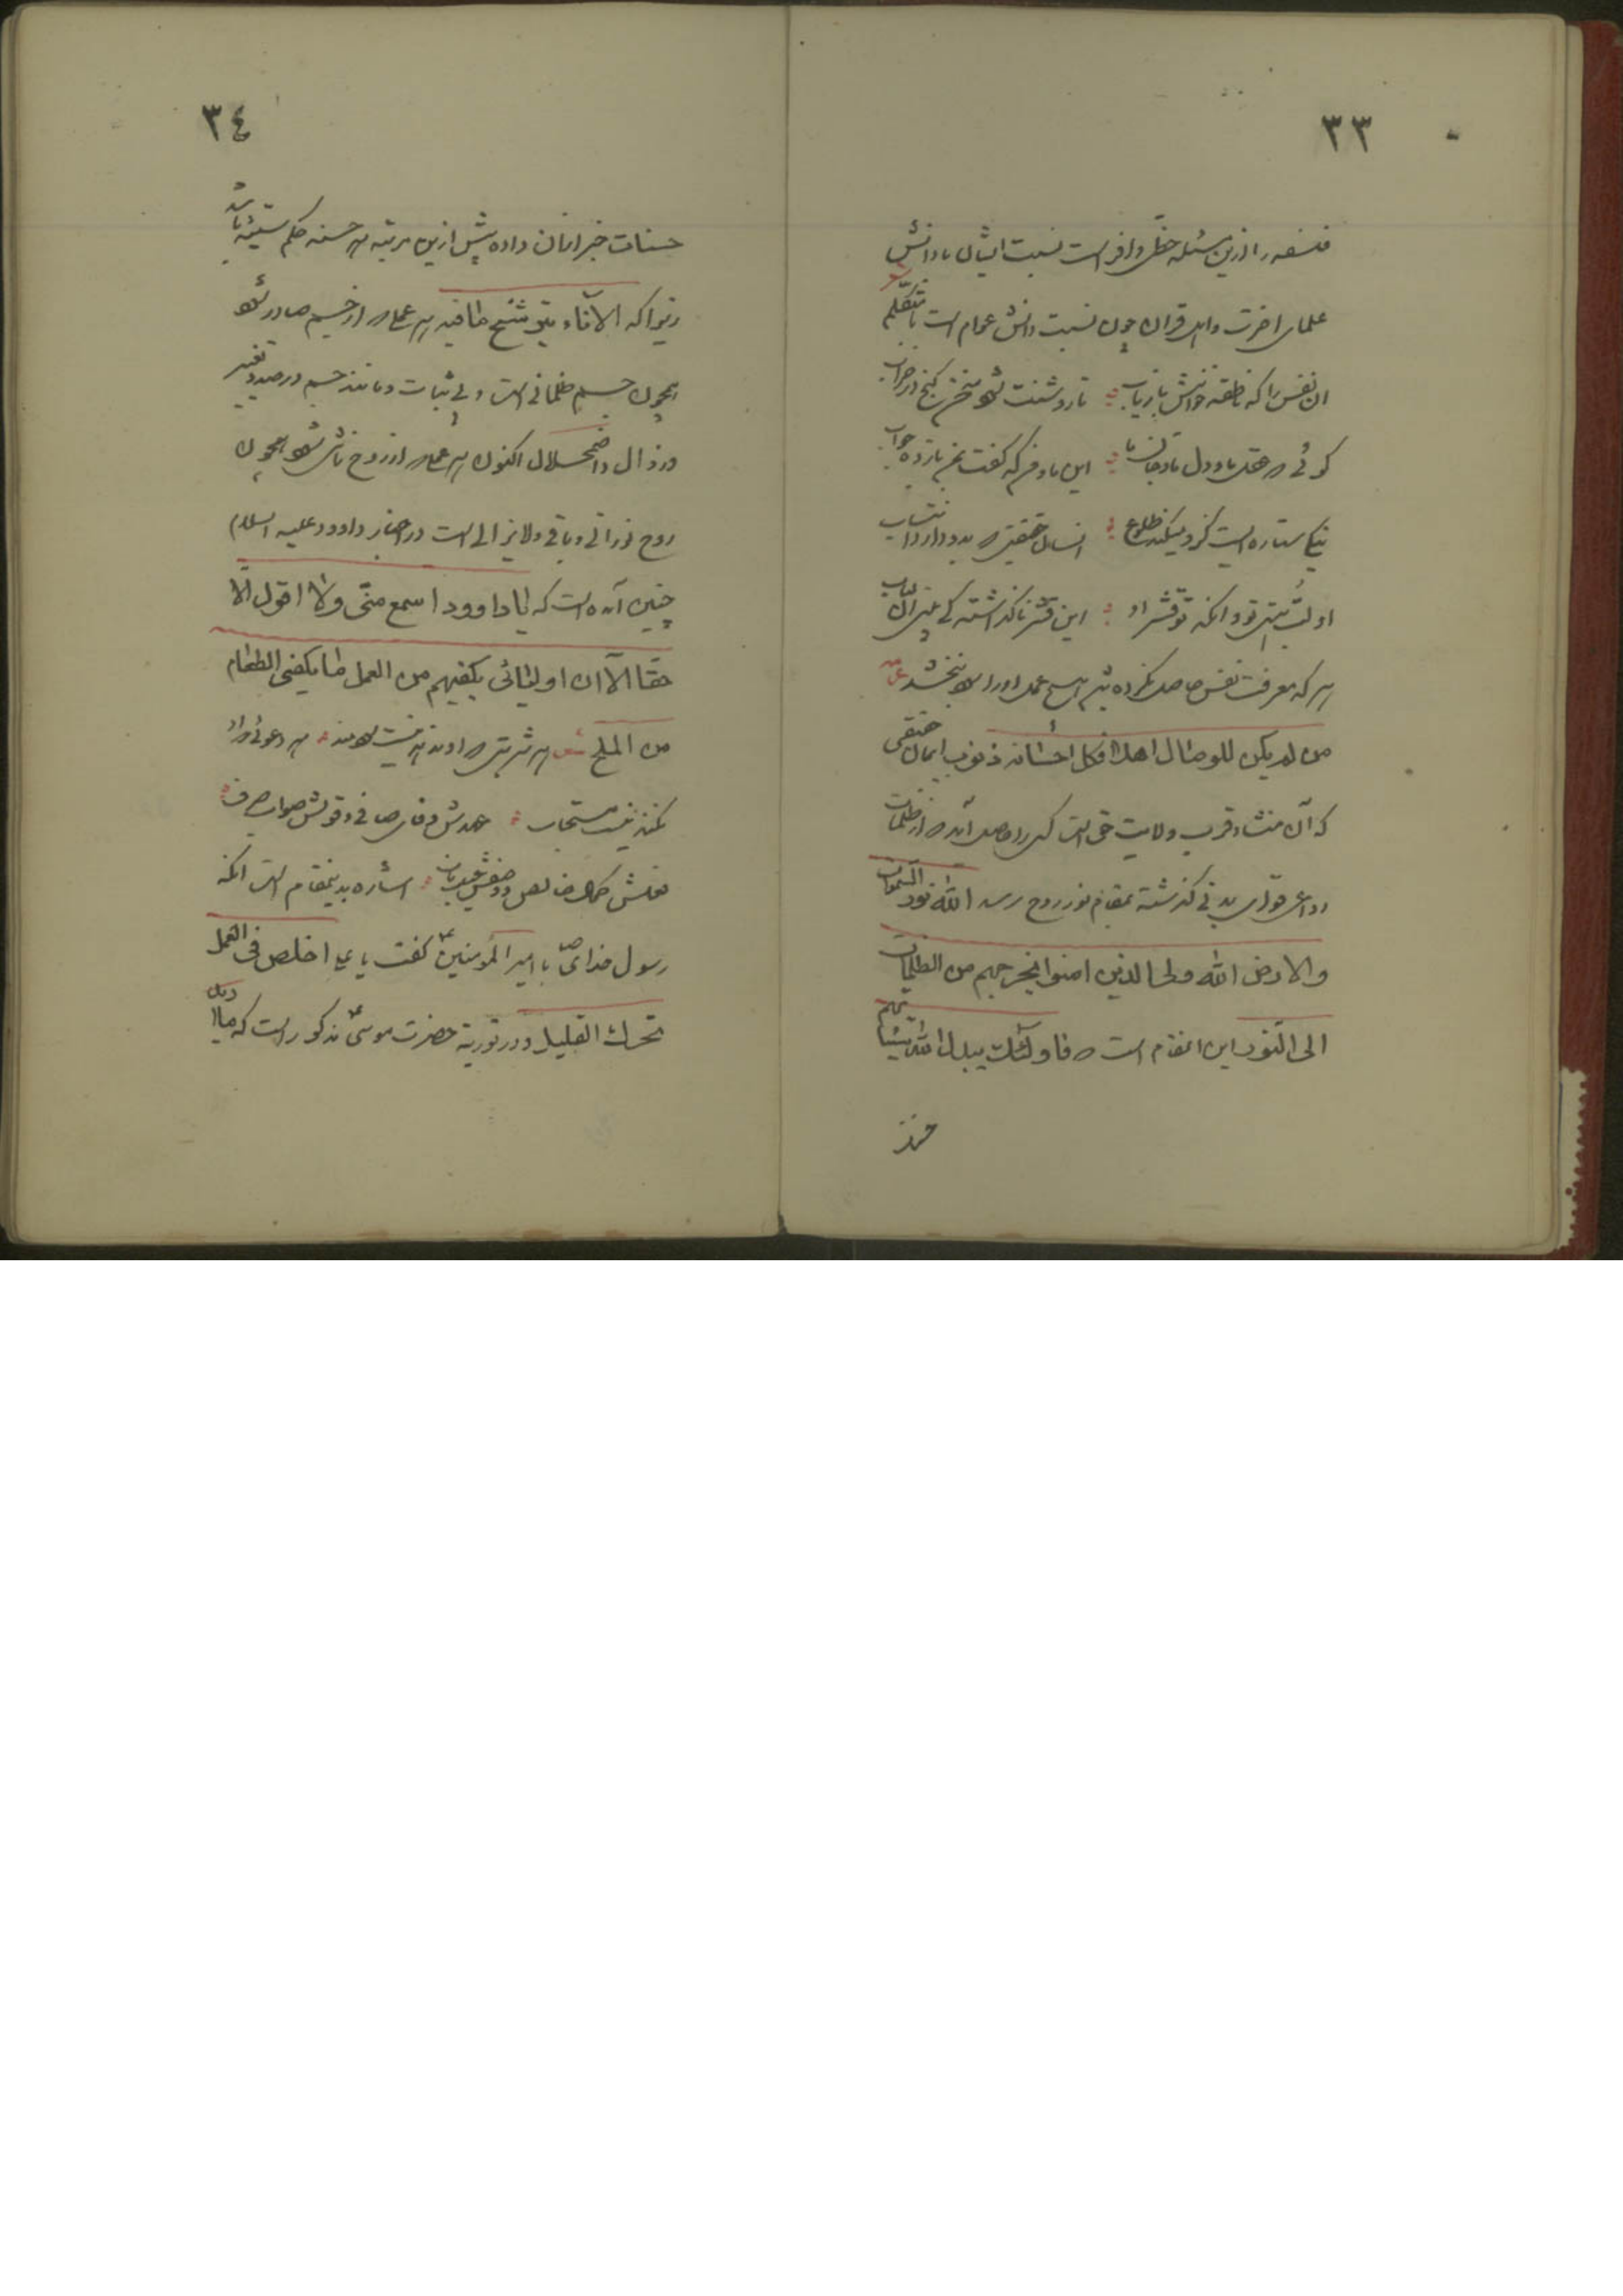 ٣٣
فلسفه را ازین مسئله حظی وافر است نسبت ایشان با دانش
علمای اخرت و اهل قران چون نسبت دانش عوام است با متکلم شعر
ان نفس را که ناطقه خوانیش بازیاب تا روشنت شود سخن گنج در خراب
گوئی که عقل ما و دل ما و جان ما این ما و من که گفت بمن بازده جواب
یک ستاره است کزو میکند طلوع انسان حقیقتی که بدو دارد انتساب
او لب تو و انکه تو قشر او این قشر ناگذشته کی بینی ان لباب
هر که معرفت نفس حاصل نکرده هیچ عمل اورا سود نبخشد ع
من لم یکن للوصال اهلا فکل احسانه ذنوب ایمان حقیقی
که آن منشاء قرب ولایت حق است کسی را حاصل آید که از ظلمات
دواعی قوای بدنی گذشته بمقام نور روح رسد الله نور السموات
والارض الله ولی الذین امنوا یخرجهم من الظلمات
الی النور این مقام است که فاولئک یبدل الله سیئاتهم
حسنات
٣٤
حسنات خبر از ان داده پیش ازین مرتبه هر حسنه حکم سیئه باشد
زیرا که الاناء یترشح بما فیه هر عمل که از جسم صادر شود
همچون جسم ظلمانی است و بی ثبات و مانند جسم در صدد تغیر
و زوال و اضمحلال اکنون هر عمل که از روح ناشی شود همچون
روح نورانی و باقی و لایزالی است در اخبار داوود علیه السلام
چنین آمده است که یا داوود اسمع منی ولا اقول الا
حقا الا ان اولیائی یکفیهم من العمل ما یکفی الطعام
من الملح شعر هر شربتی که او ندهد نیست سودمند هر دعوئی که او
نکند نیست مستجاب عهدش وفای صافی و قولش صواب صرف
نفلش کمال خالص اشاره بدینمقام است انکه
رسول خدای ص با امیر المؤمنین ع گفت یا علی اخلص فی العمل
یجزک القلیل و در توریة حضرت موسی ع مذکور است که ما ارید